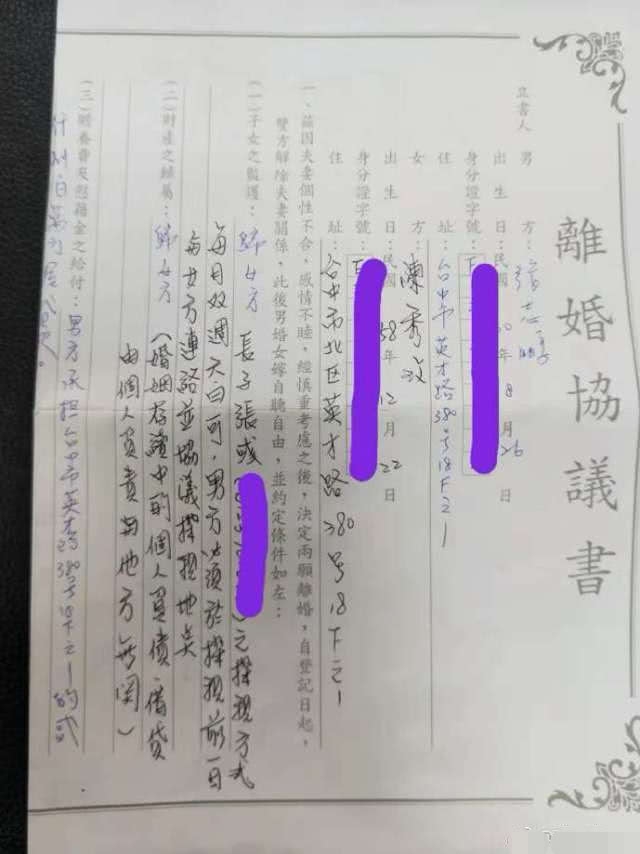 離婚協議書
立書人 男 方：張志
出 生 日：民國 年 8 月 26 日
身分證字號：F
住 址：台中市英才路380号18F之1
女 方：陳秀
出 生 日：民國 58 年 12 月 22 日
身分證字號：F
住 址：台中市北区英才路380号18F之1
一、茲因夫妻個性不合，感情不睦，經慎重考慮之後，決定兩願離婚，自登記日起，
雙方解除夫妻關係，此後男婚女嫁自聽自由，並約定條件如左：
(一)子女之監護：歸女方 長子張彧 之探視方式
每月 週 天白 可，男方必須於探視前一日
與女方連絡並協議探視地点
(二)財產之歸屬：歸女方 (婚姻存續中的個人負債、借貸
由個人負責與他方無関)
(三)贍養費及慰藉金之給付：男方承担台中市英才路380号18F之1的貳